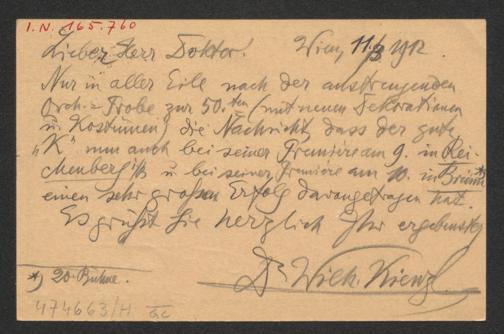 I.N. 165.760
Lieber Herr Doktor! Wien, 11/3 1912.
Nur in aller Eile nach der anstrengenden
Orch.-Probe zur 50.ten (mit neuen Dekorationen
u. Kostümen) die Nachricht, dass der gute
„K" nun auch bei seiner Première am 9. in Rei-
chenberg i/B u. bei seiner Première am 10. in Brünn*)
einen sehr großen Erfolg davongetragen hat.
Es grüßt Sie herzlich Ihr ergebenster
Dr Wilh. Kienzl
*) 20. Bühne.
474663/H